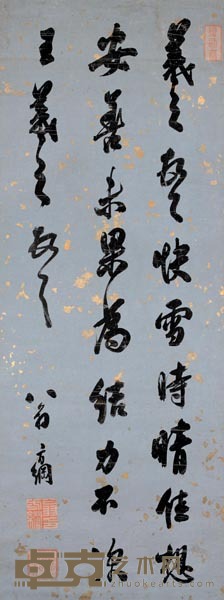 羲之頓首快雪時晴佳想
安善未果為結力不次
王羲之頓首
翁方綱
卓克艺术网